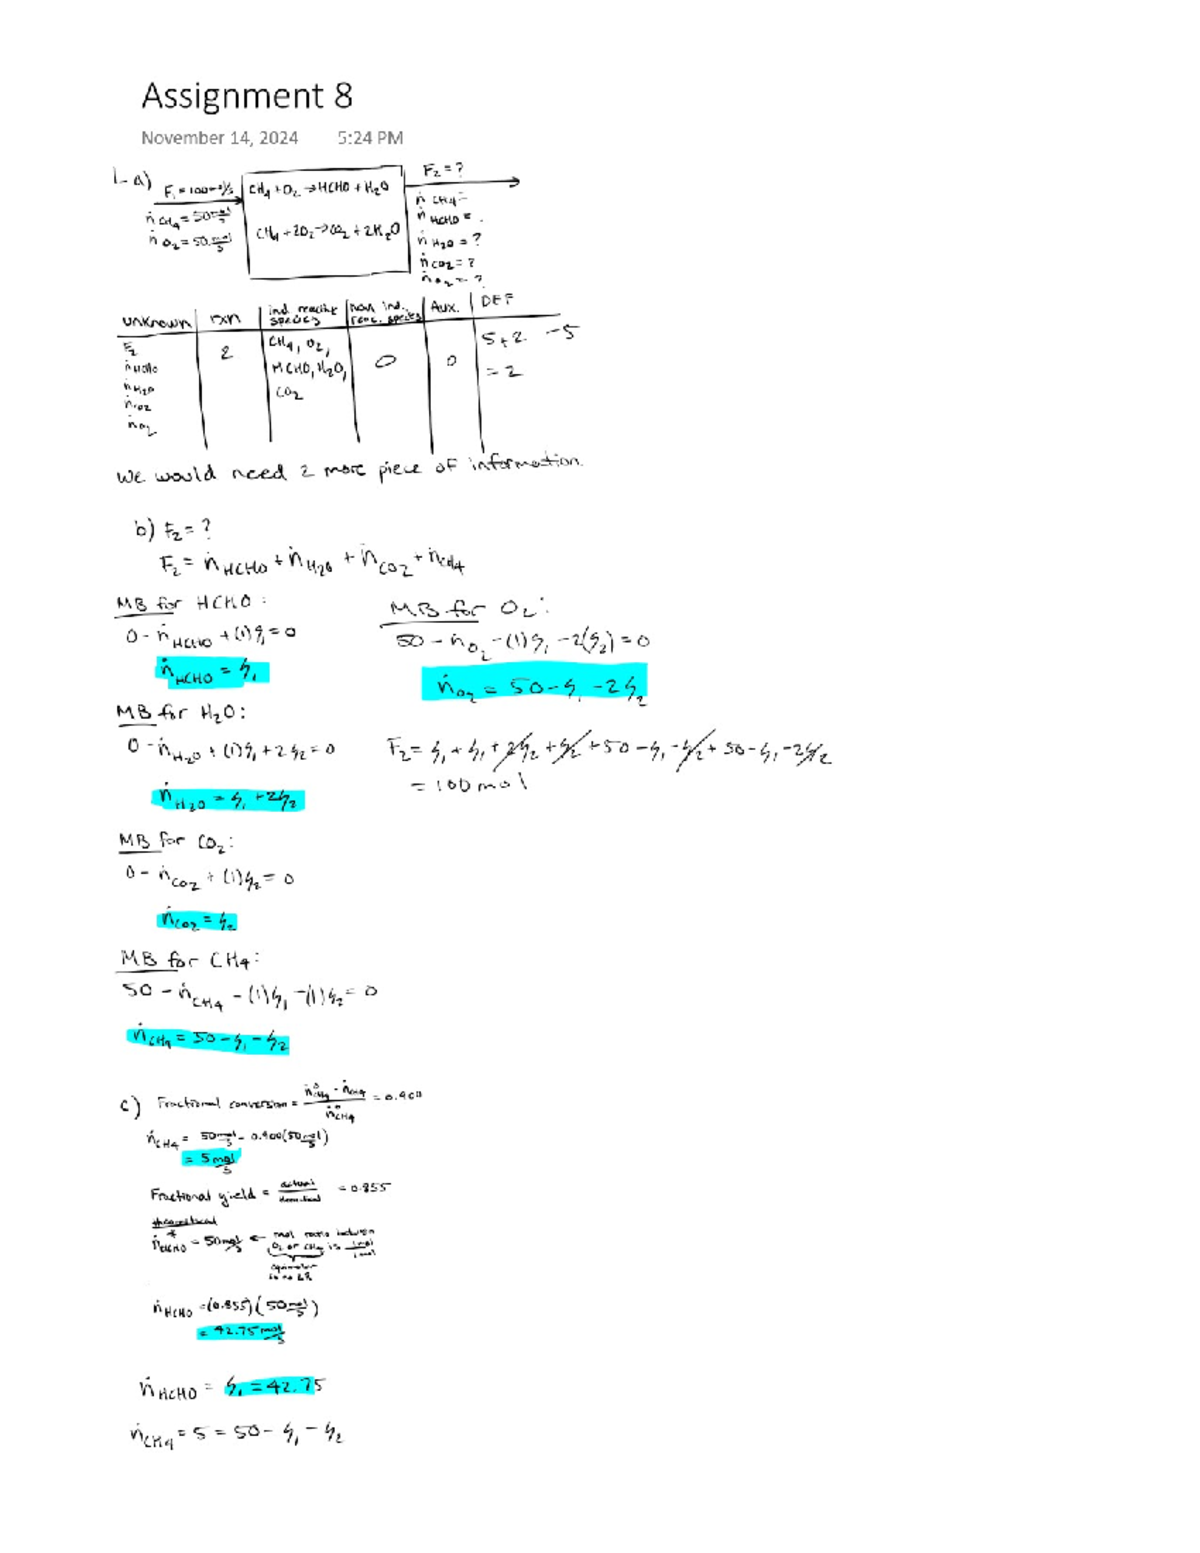 Assignment 8
November 14, 2024 5:24 PM
1- a) F₁ = 100mol/s CH₄ + O₂ → HCHO + H₂O F₂ = ?
ṅ CH₄ = 50 mol/s CH₄ + 2O₂ → CO₂ + 2H₂O ṅ CH₄ =
ṅ O₂ = 50 mol/s ṅ HCHO = .
ṅ H₂O = ?
ṅ CO₂ = ?
ṅ O₂ = ?
unknown rxn ind. reactive species non ind. reac. species Aux. DEF
F₂ 2 CH₄, O₂, 0 0 5+2 -5
ṅ HCHO HCHO, H₂O, = 2
ṅ H₂O CO₂
ṅ CO₂
ṅ O₂
we would need 2 more piece of information.
b) F₂ = ?
F₂ = ṅ HCHO + ṅ H₂O + ṅ CO₂ + ṅ CH₄
MB for HCHO :
0 - ṅ HCHO + (1)ξ₁ = 0
ṅ HCHO = ξ₁
MB for O₂ :
50 - ṅ O₂ - (1)ξ₁ - 2(ξ₂) = 0
ṅ O₂ = 50 - ξ₁ - 2ξ₂
MB for H₂O :
0 - ṅ H₂O + (1)ξ₁ + 2ξ₂ = 0
ṅ H₂O = ξ₁ + 2ξ₂
F₂ = ξ₁ + ξ₁ + 2ξ₂ + ξ₂ + 50 - ξ₁ - ξ₂ + 50 - ξ₁ - 2ξ₂
= 100 mol
MB for CO₂ :
0 - ṅ CO₂ + (1)ξ₂ = 0
ṅ CO₂ = ξ₂
MB for CH₄ :
50 - ṅ CH₄ - (1)ξ₁ - (1)ξ₂ = 0
ṅ CH₄ = 50 - ξ₁ - ξ₂
c) Fractional conversion = (ṅ° CH₄ - ṅ CH₄) / ṅ° CH₄ = 0.900
ṅ CH₄ = 50 mol/s - 0.900(50 mol/s)
= 5 mol/s
Fractional yield = actual / theoretical = 0.855
theoretical
ṅ* HCHO = 50 mol/s ← mol ratio between
O₂ or CH₄ is 1 mol / 1 mol
equimolar
so no LR
ṅ HCHO = (0.855)(50 mol/s)
= 42.75 mol/s
ṅ HCHO = ξ₁ = 42.75
ṅ CH₄ = 5 = 50 - ξ₁ - ξ₂